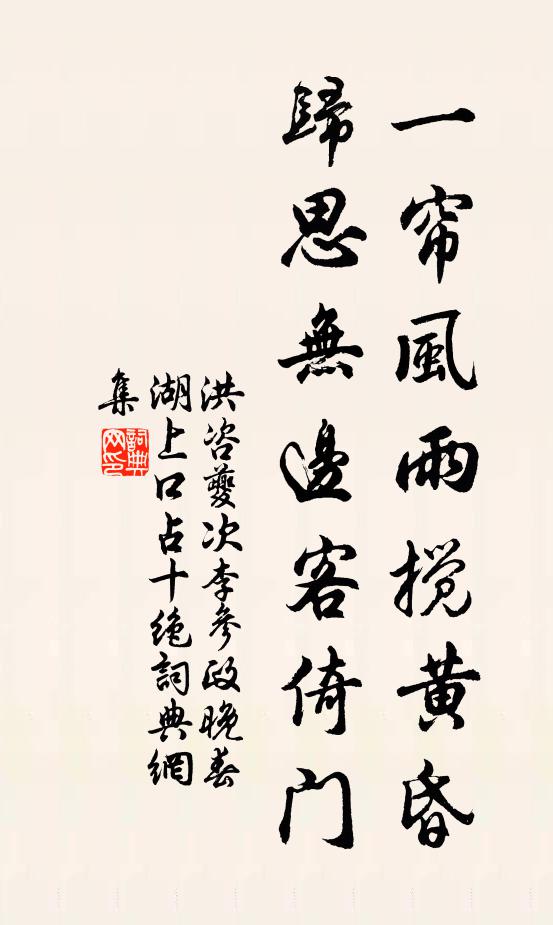 一帘風雨攪黄昏
歸思無邊客倚门
洪咨夔次李參政晚春
湖上口占十绝詞典網
集
詞典
网印